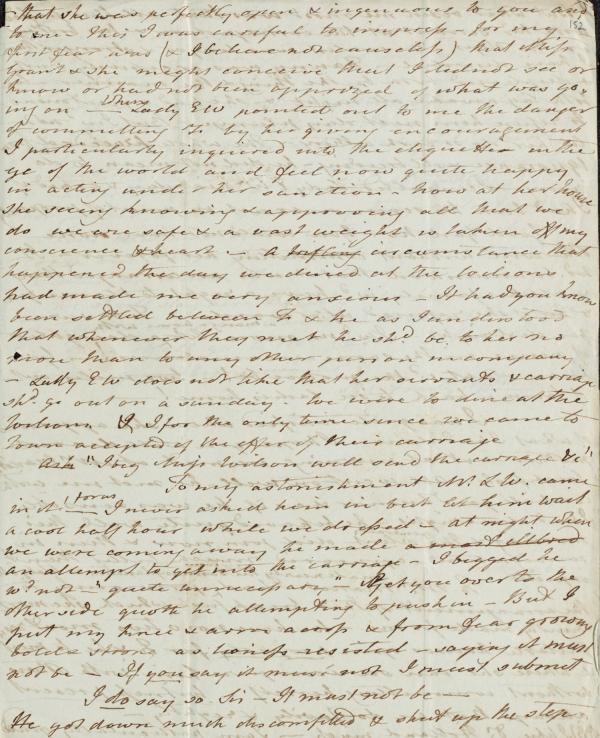 - that she was perfectly open & ingenuous to you and
152
to me this I was careful to impress - for my
first fear was (& I believe not causeless) that Miss
Grant & she might conceive that I did not see or
know or had not been apprized of what was go-
ing on - When Lady EW pointed out to me the danger
of committing by his giving encouragement
I particularly inquired into the in the
eye of the world and feel now quite happy
in acting under her sanction. Now at her house
she seeing knowing & approving all that we
do we are safe & a vast weight is taken off my
conscience & heart - A trifling circumstance that
happened the day we dined at the Wilsons
had made me very anxious - It had you know
been settled between & me as I understood
that whenever they met he shd. be to her no
more than to any other person in company
- Lady EW does not like that her servants & carriage
shd. go out on a Sunday - We were to dine at the
Wilsons & I for the only time since we came to
town accepted of the offer of their carriage
Ask "I beg Miss Wilson will send the carriage &c"
To my astonishment Mr. L W. came
in it! for us - I never asked him in but let him wait
a cool half hour while we dressed - at night when
we were coming away he made a most illbred
an attempt to get into the carriage - I begged he
wd. not - "quite unnecessary" - Get you over to the
other side quoth he attempting to push in - But I
put my knee & arm across & from fear growing
bold & strong as resisted - saying it must
not be - If you say it must not I must submit
I do say so Sir - It must not be -
He got down much discomfited & shut up the step